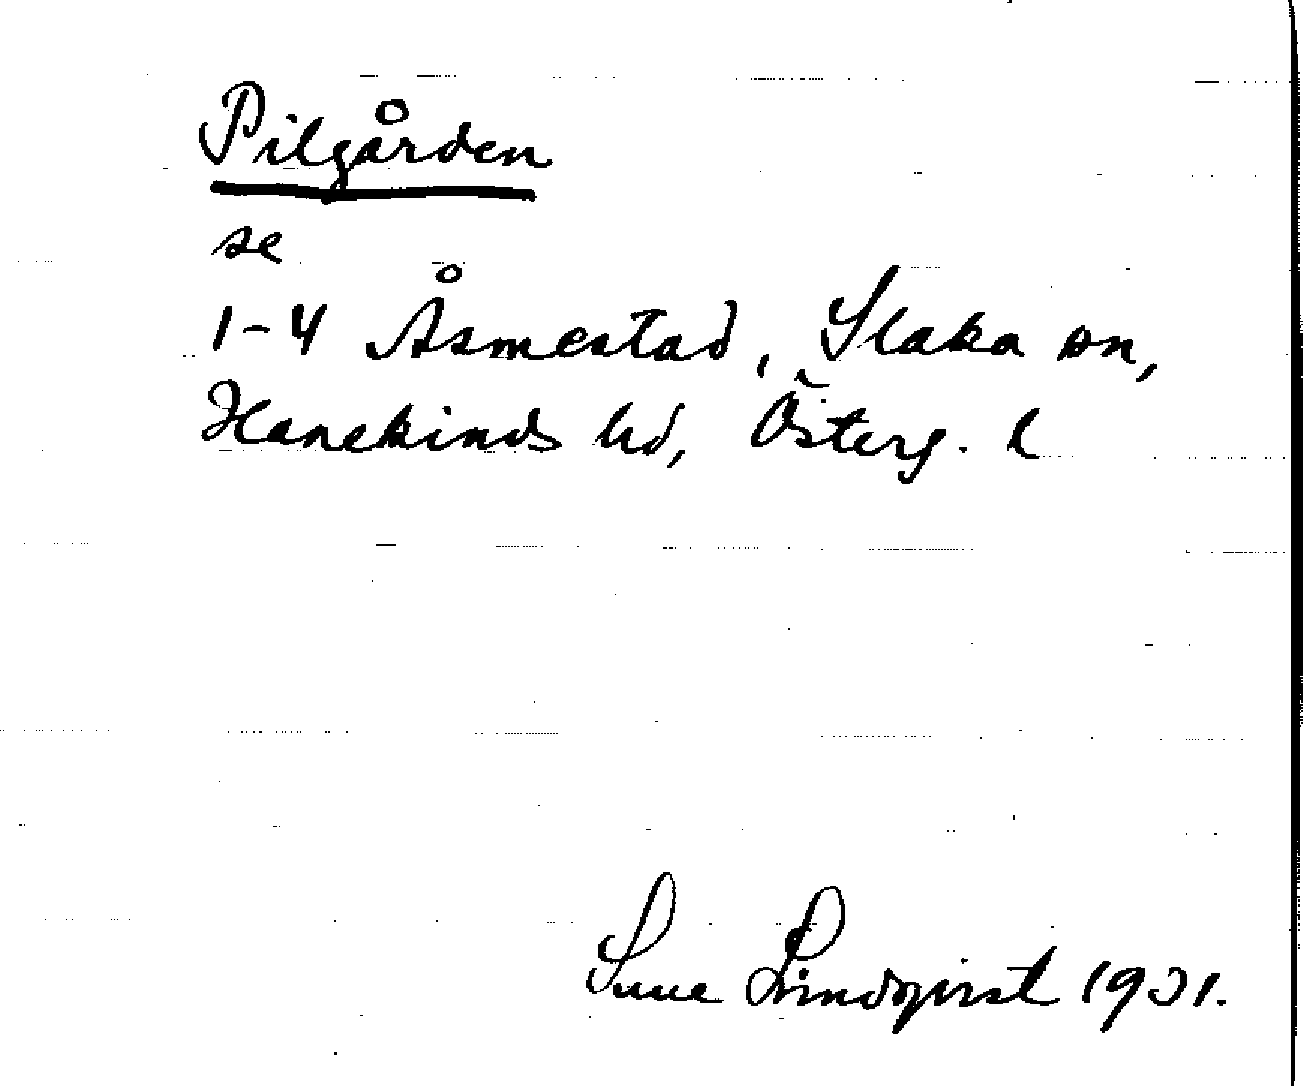 Pilgården
se
1-4 Åsmestad, Slaka sn,
Hanekinds hd, Österg. l
Sune Lindqvist 1931.